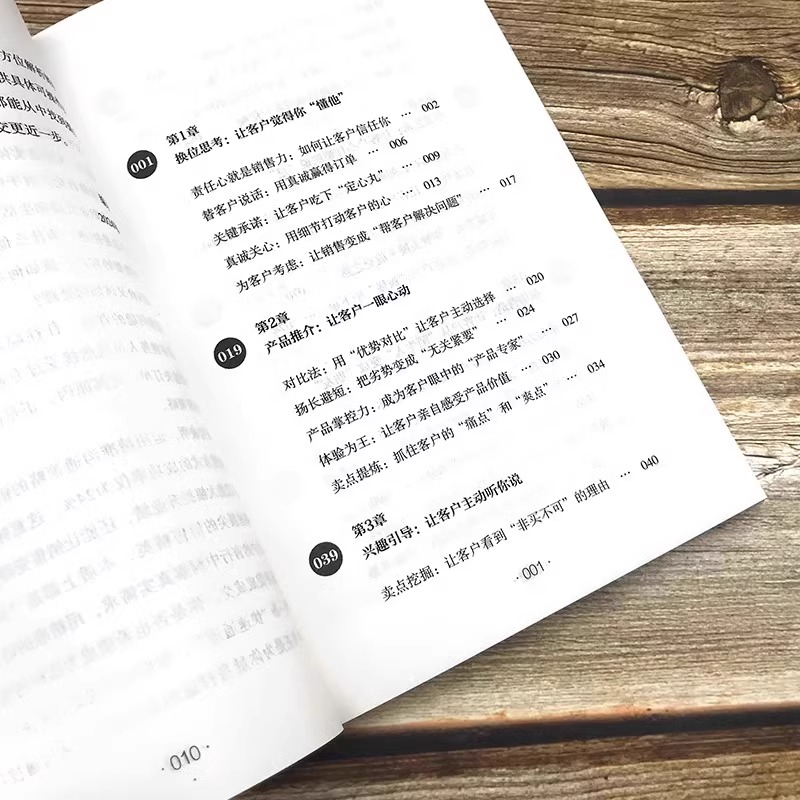 方位解
供具体可
都能从中找到
交更近一步。
010
001
第1章
换位思考：让客户觉得你“懂他”
责任心就是销售力：如何让客户信任你 … 002
替客户说话：用真诚赢得订单 … 006
关键承诺：让客户吃下“定心丸” … 009
真诚关心：用细节打动客户的心 … 013
为客户考虑：让销售变成“帮客户解决问题” … 017
019
第2章
产品推介：让客户一眼心动
对比法：用“优势对比”让客户主动选择 … 020
扬长避短：把劣势变成“无关紧要” … 024
产品掌控力：成为客户眼中的“产品专家” … 027
体验为王：让客户亲自感受产品价值 … 030
卖点提炼：抓住客户的“痛点”和“卖点” … 034
039
第3章
兴趣引导：让客户主动听你说
卖点挖掘：让客户看到“非买不可”的理由 … 040
· 001 ·